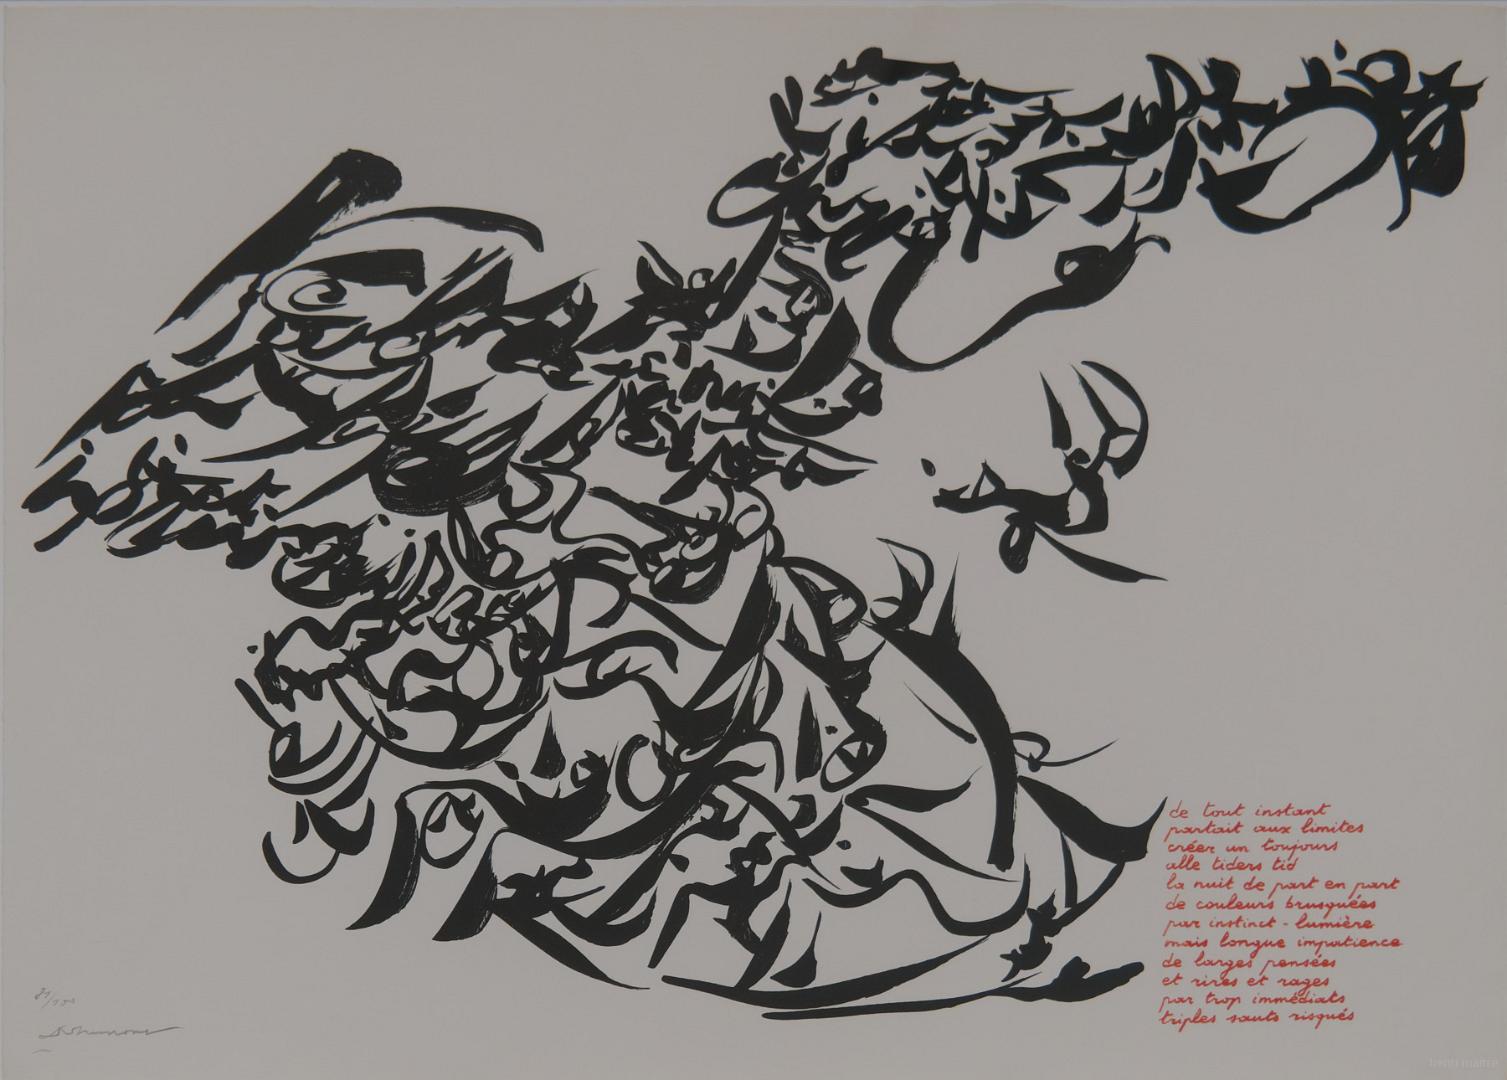 de tout instant
partait aux limites
créer un toujours
alle tiders tid
la nuit de part en part
de couleurs brusquées
par instinct-lumière
mais longue impatience
de larges pensées
et rires et rages
par trop immédiats
triples sauts risqués